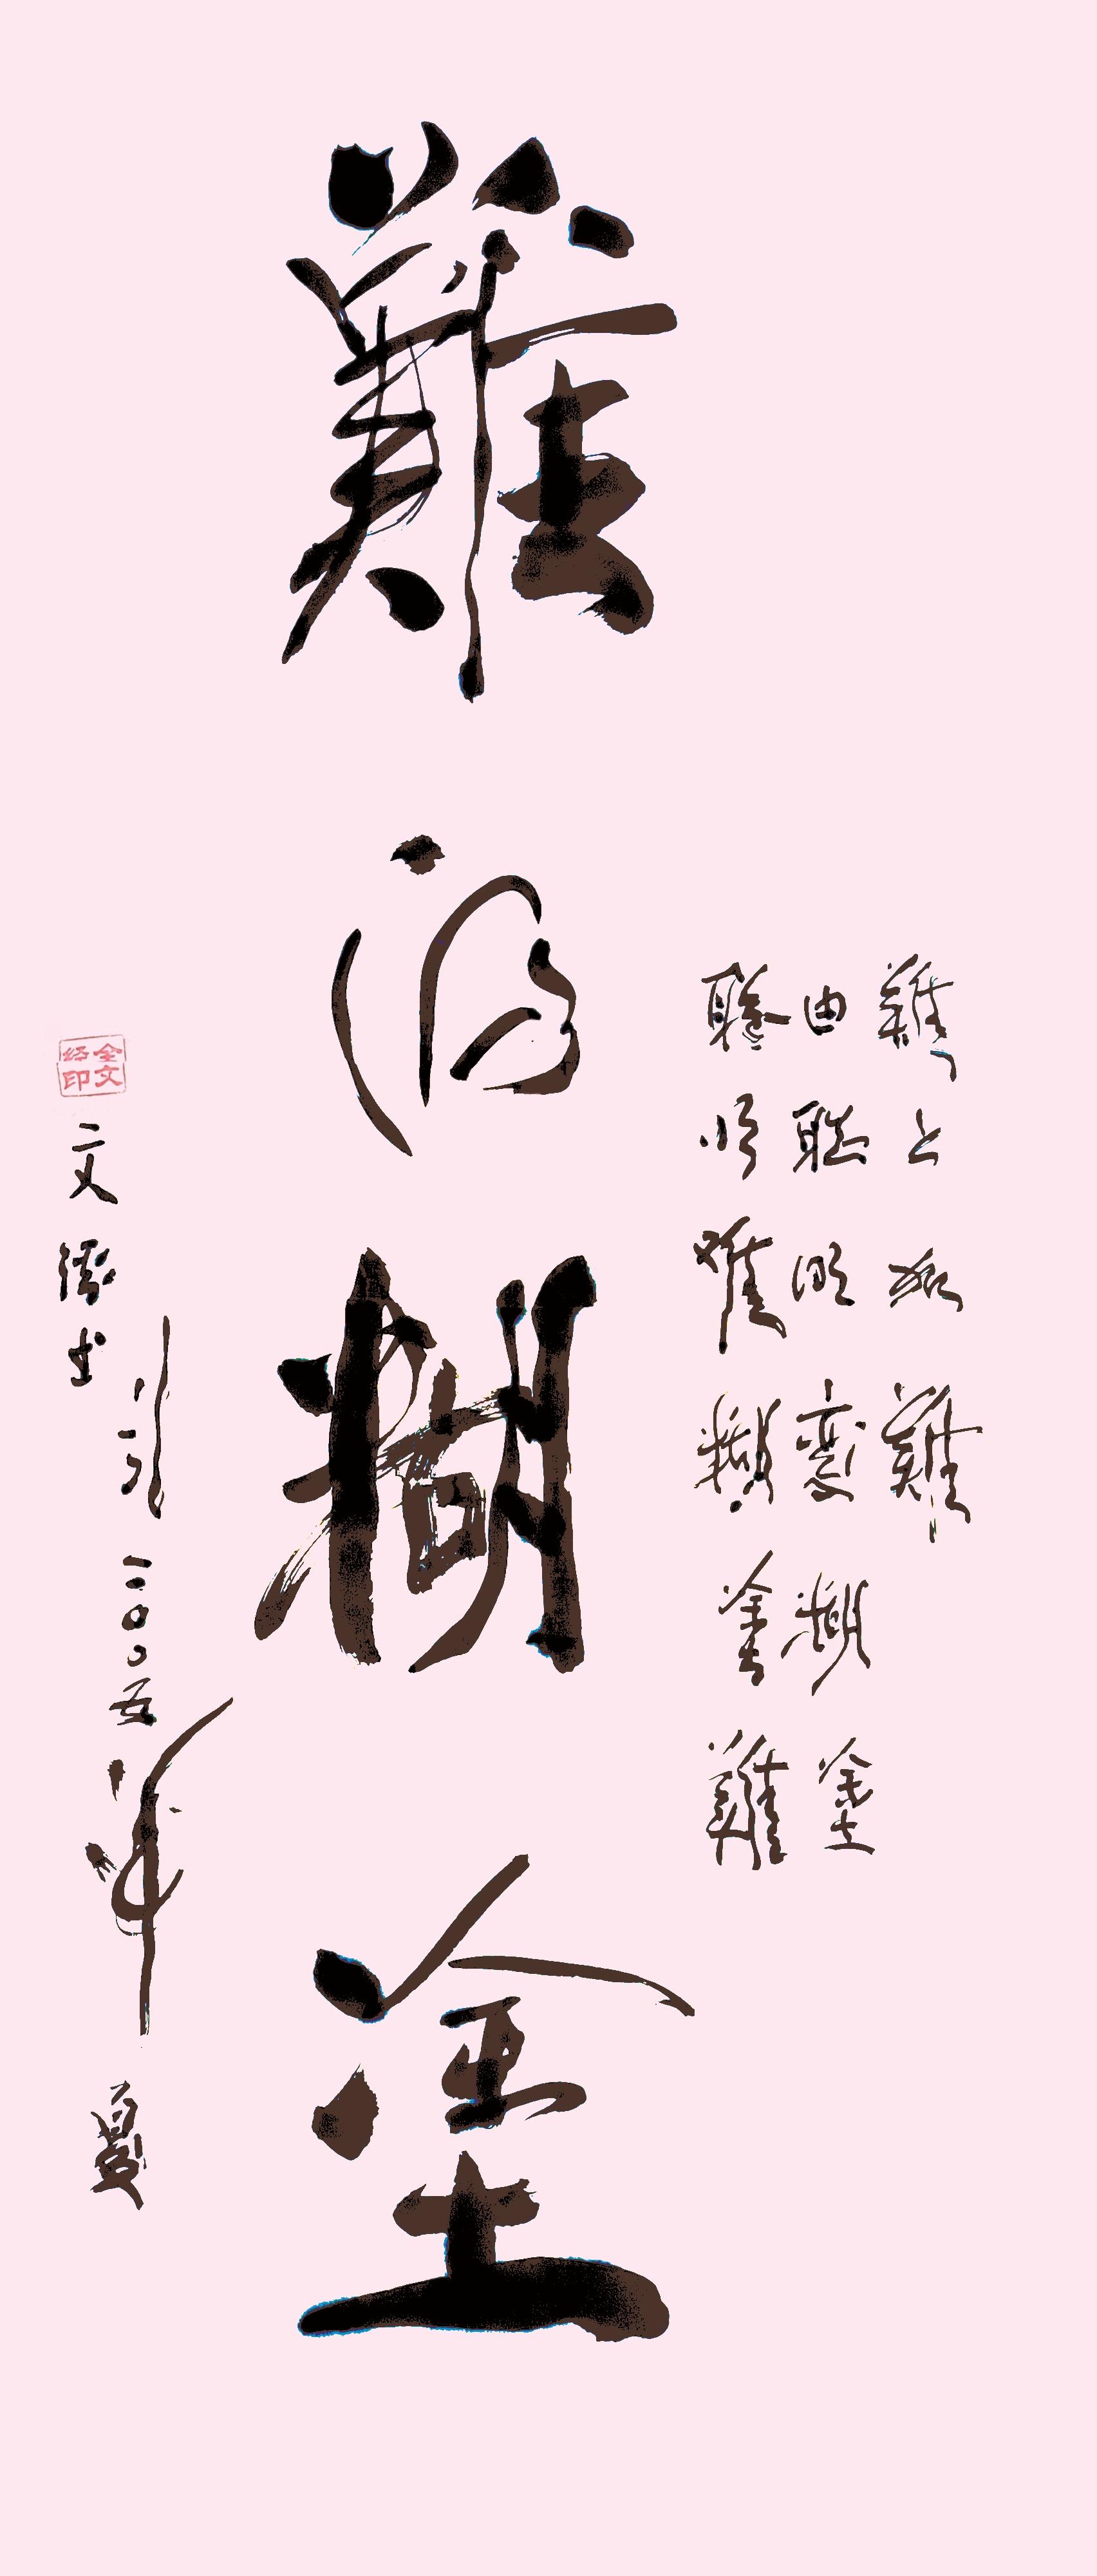 難得糊塗
聰明難糊塗難
由聰明變糊塗
難上加難
二〇〇五年夏
文經书
全文
经印